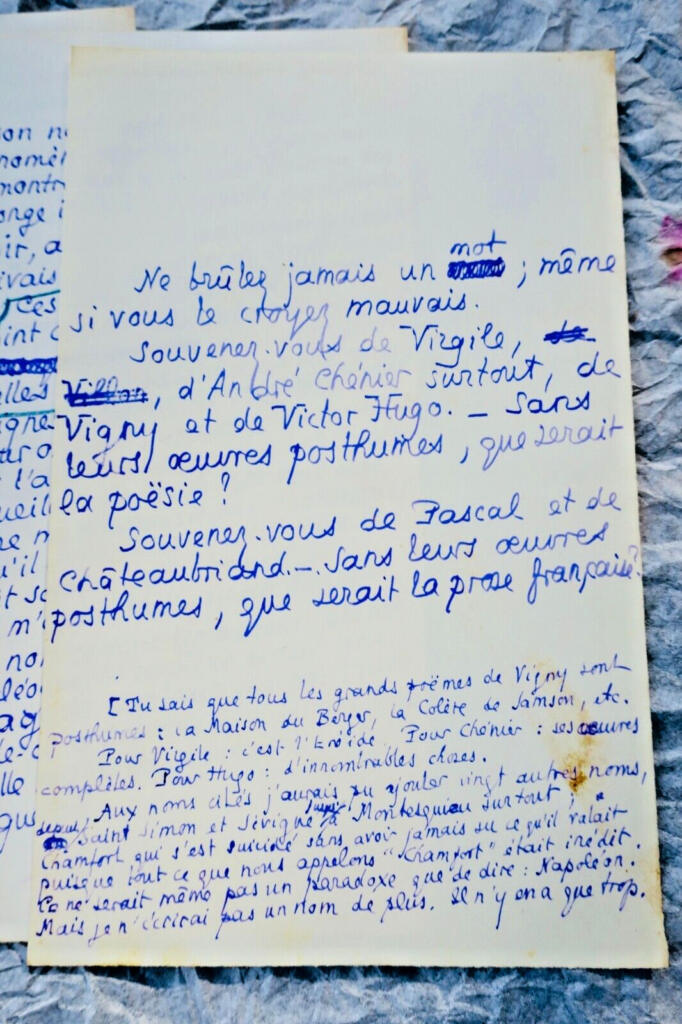 on n
nomè
montr
onge i
ir, a
ivais
ces
int c
elles
igne
l'a
ueil
u'il
t so
m'
no
léo
ag
elle
gus
mot
Ne brûlez jamais un ; même
si vous le croyez mauvais.
Souvenez-vous de Virgile, de
Villon, d'André Chénier surtout, de
Vigny et de Victor Hugo. — Sans
leurs œuvres posthumes, que serait
la poësie ?
Souvenez-vous de Pascal et de
Châteaubriand. — Sans leurs œuvres
posthumes, que serait la prose française ?
[Tu sais que tous les grands poëmes de Vigny sont
posthumes : la Maison du Berger, la Colère de Samson, etc.
Pour Virgile : c'est l'Enéide. Pour Chénier : ses œuvres
complètes. Pour Hugo : d'innombrables choses.
Aux noms cités j'aurais pu ajouter vingt autres noms,
depuis Saint Simon et Sévigné jusqu'à Montesquieu surtout ; à
Chamfort qui s'est suicidé sans avoir jamais su ce qu'il valait
puisque tout ce que nous appelons "Chamfort" était inédit.
Ce ne serait même pas un paradoxe que de dire : Napoléon.
Mais je n'écrirai pas un nom de plus. Il n'y en a que trop.